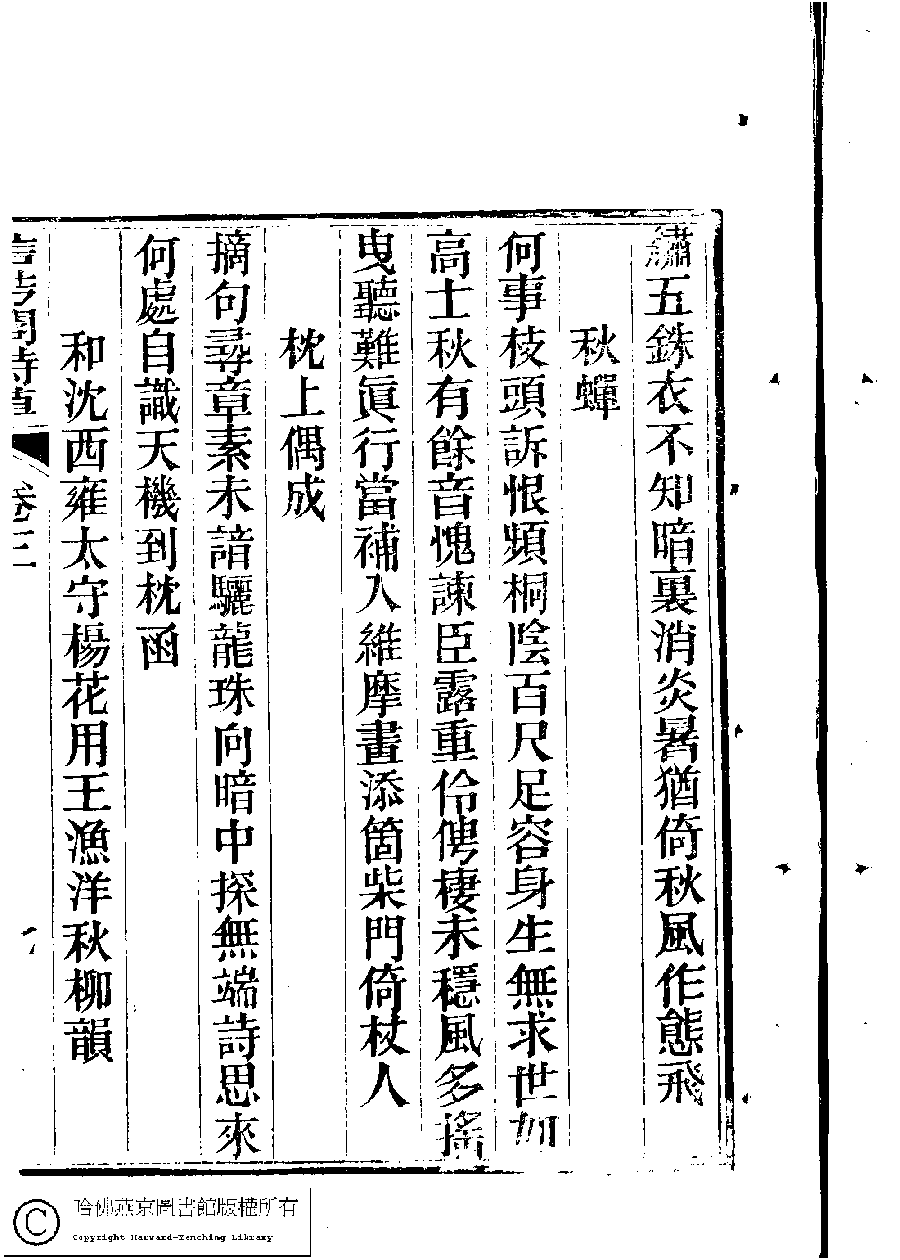 繡五銖衣不知暗裏消炎暑猶倚秋風作態飛
秋蟬
何事枝頭訴恨頻桐陰百尺足容身生無求世如
高士秋有餘音愧諫臣露重伶俜棲未穩風多搖
曳聽難眞行當補入維摩畫添箇柴門倚杖人
枕上偶成
摘句尋章素未諳驪龍珠向暗中探無端詩思來
何處自識天機到枕函
和沈西雍太守楊花用王漁洋秋柳韻
卷三
哈佛燕京圖書館版權所有
Copyright Harvard-Yenching Library